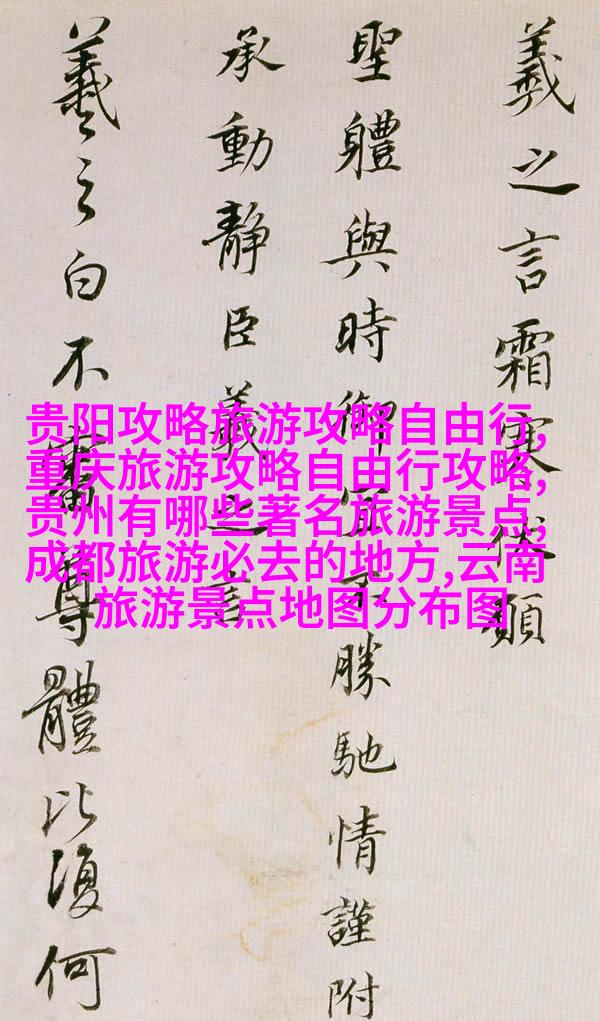 羲之言霜寒伏願
聖體與時御宜不勝馳情謹附
承動靜臣羲之言
羲之白不審尊體比復何
贵阳攻略旅游攻略自由行,
重庆旅游攻略自由行攻略,
贵州有哪些著名旅游景点,
成都旅游必去的地方,云南
旅游景点地图分布图